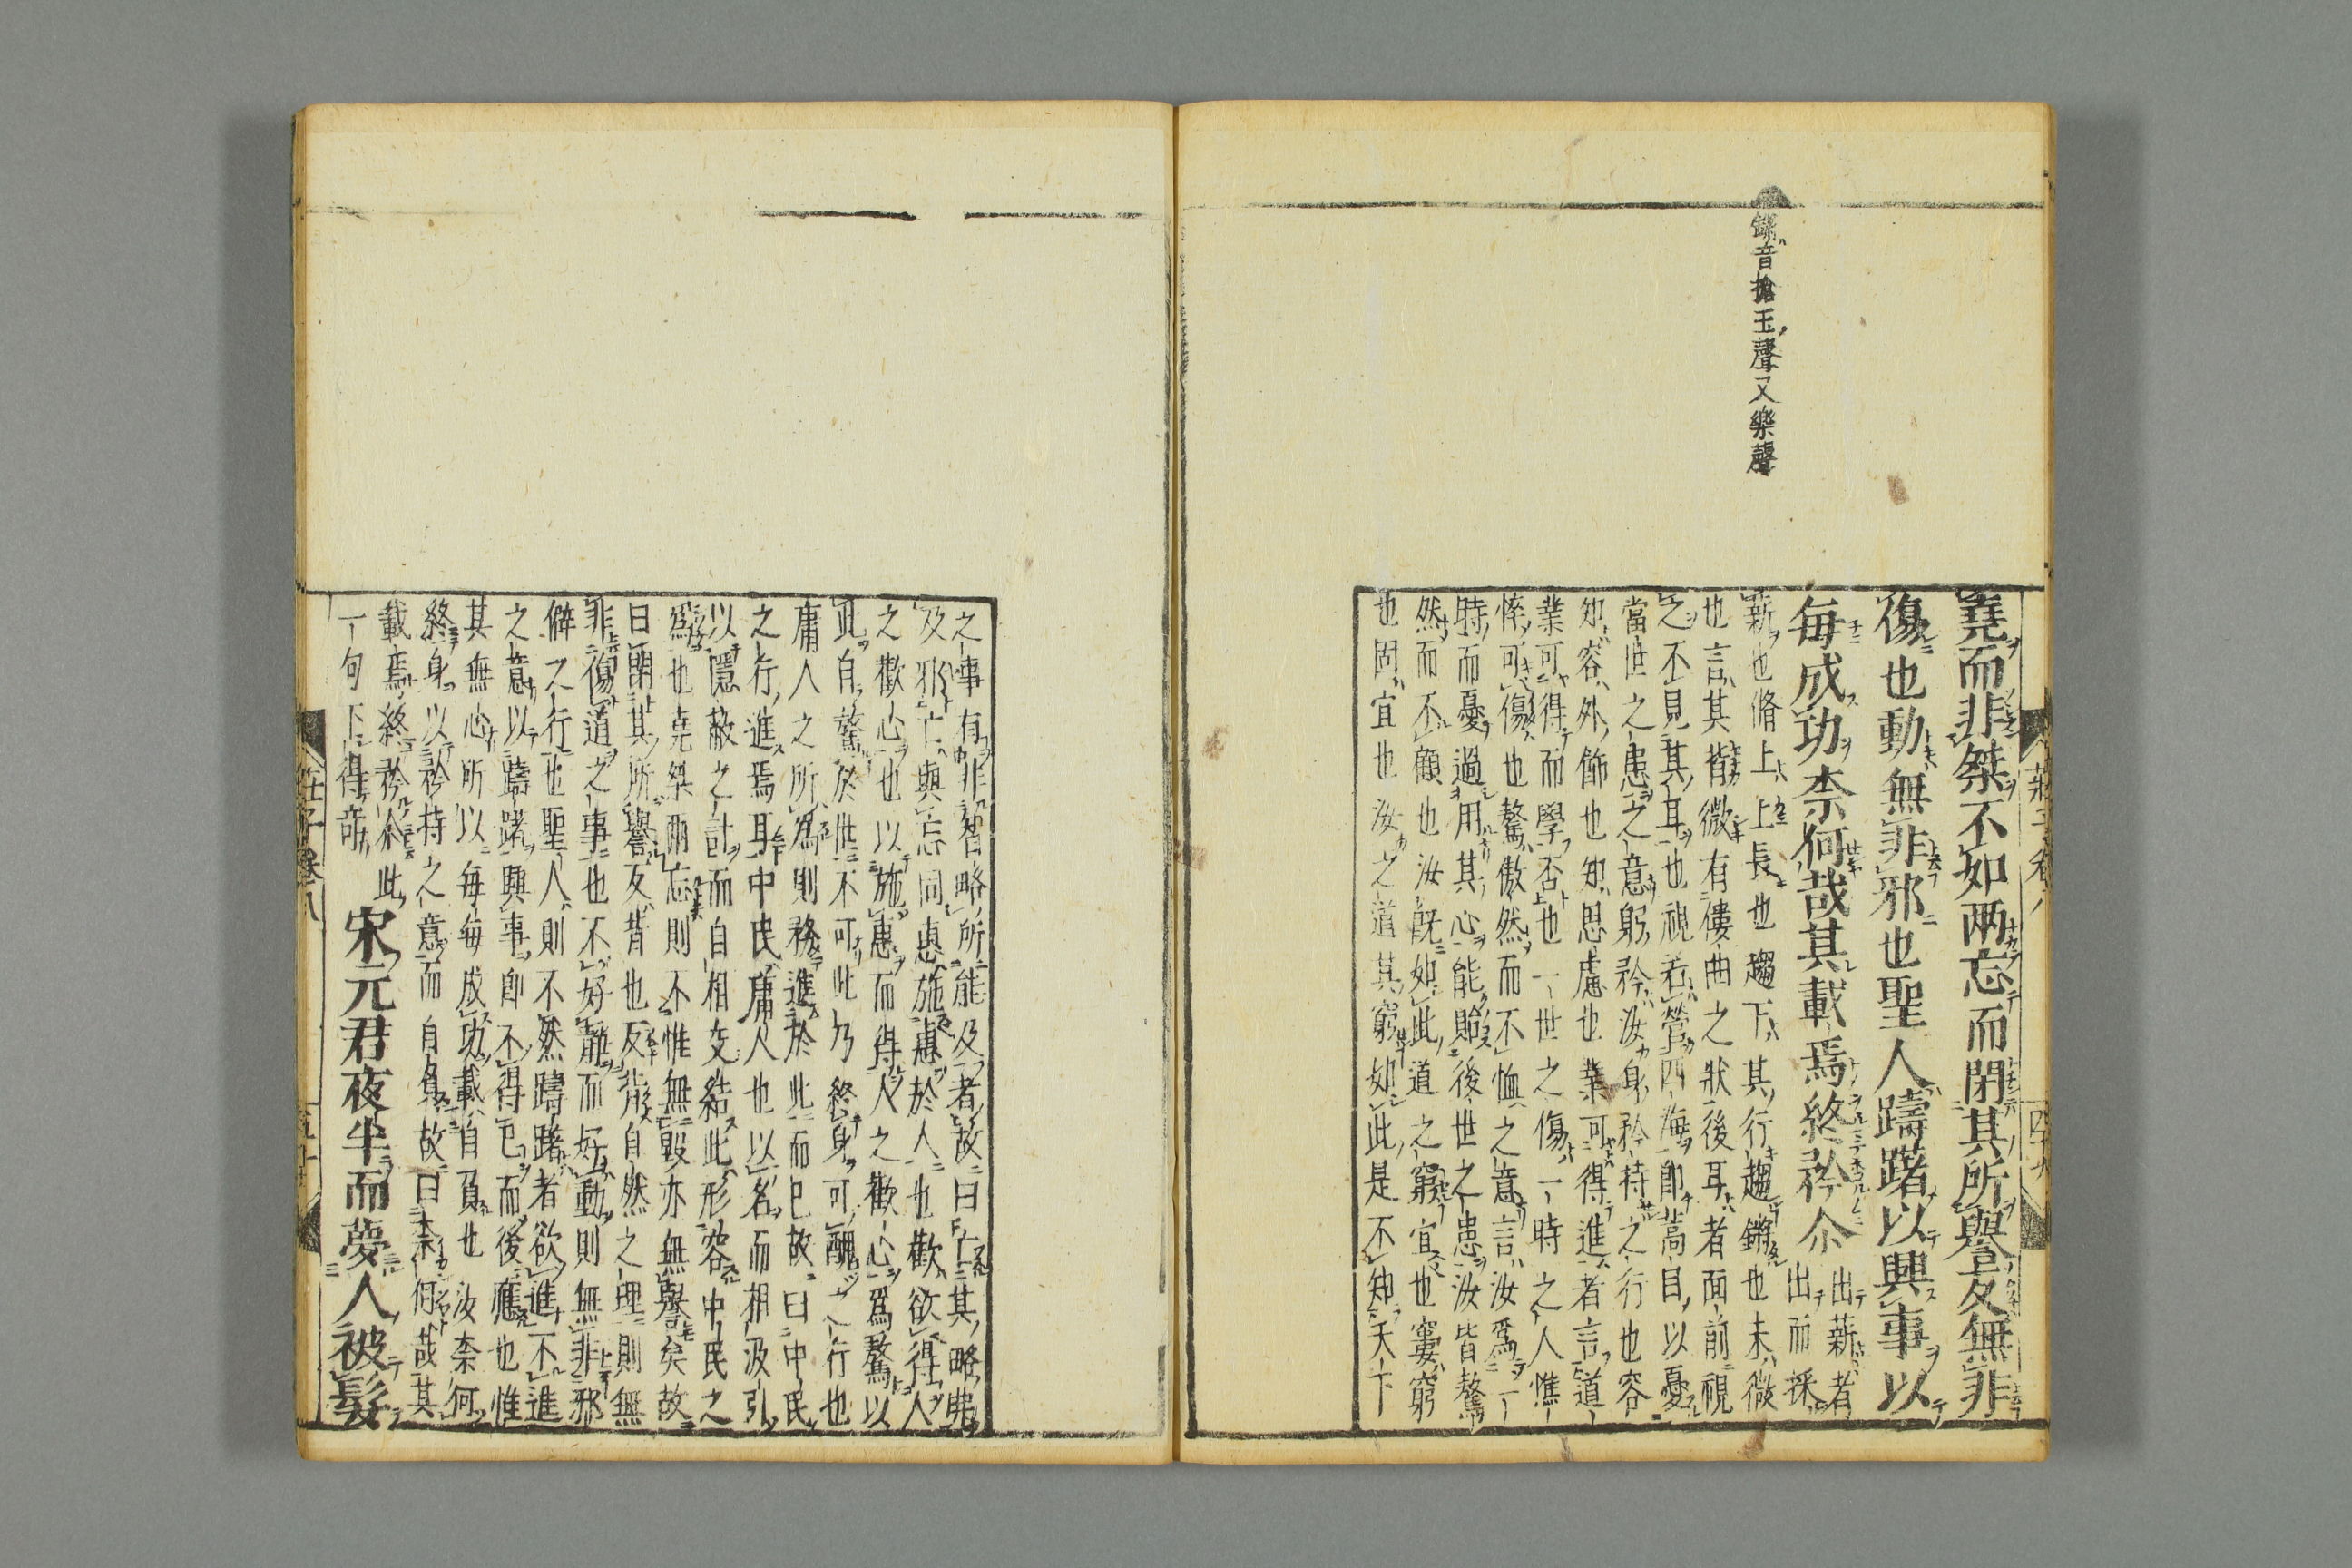 堯而非桀不如両忘而閉其所譽反無非
傷也動無非邪也聖人躊躇以興事以
毎成功柰何哉其載焉終矜尒
出薪者
出而採
薪也脩上上長也趨下其行趨鏘也末微
也言其背微有僂曲之狀後耳者面前視
之不見其耳也視若營四海即蒿目以憂
當世之患之意躬矜汝身矜持之行也容
知容外飾也知思慮也業可得進者言道
業可得而學否也一世之傷一時之人憔
悴可傷也驁傲然而不恤之意言汝爲一
時而憂過用其心能貽後世之患汝皆驁
然而不顧也汝既如此道之窮宜也窶窮
也固宜也汝之道其窮如此是不知天下
鏘音搶玉聲又樂聲
莊子卷八
四十九
之事有非智略所能及者故曰亡其略弗
及邪亡與忘同惠施惠於人也歡欲得人
之歡心也以施惠而得人之歡心爲驁以
此自驁於世不可此乃終身可醜之行也
庸人之所爲則務進於此而已故曰中民
之行進焉耳中民庸人也以名而相汲引
以隱蔽之計而自相交結此形容中民之
爲也堯桀両忘則不惟無毀亦無譽矣故
曰閉其所譽反背也反背自然之理則無
非傷道之事也不好靜而好動則無非邪
僻之行也聖人則不然躊躇者欲進不進
之意以躊躇興事即不得已而後應也惟
其無心所以毎毎成功載自負也汝柰何
終身以矜持之意而自負故曰柰何哉其
載焉終矜尒此
一句下得竒
宋元君夜半而夢人被髮
莊子卷八
五十